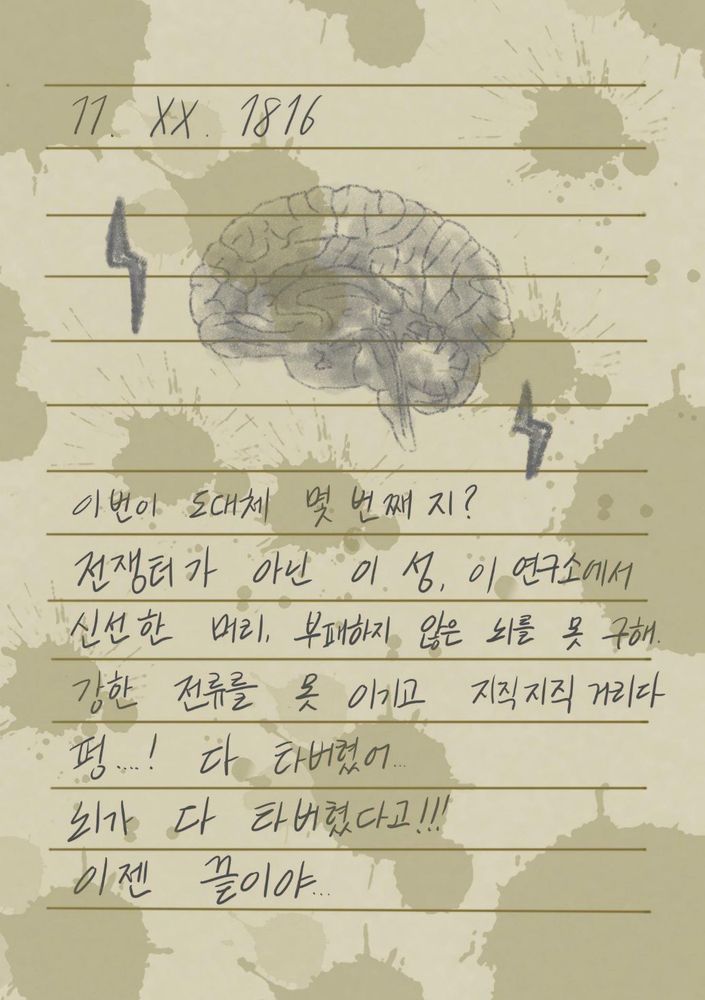 11. XX. 1816
이번이 도대체 몇 번째 지?
전쟁터가 아닌 이 성, 이 연구소에서
신선한 머리, 부패하지 않은 뇌를 못 구해.
강한 전류를 못 이기고 지직지직 거리다
펑...! 다 타버렸어..
뇌가 다 타버렸다고!!!
이젠 끝이야...